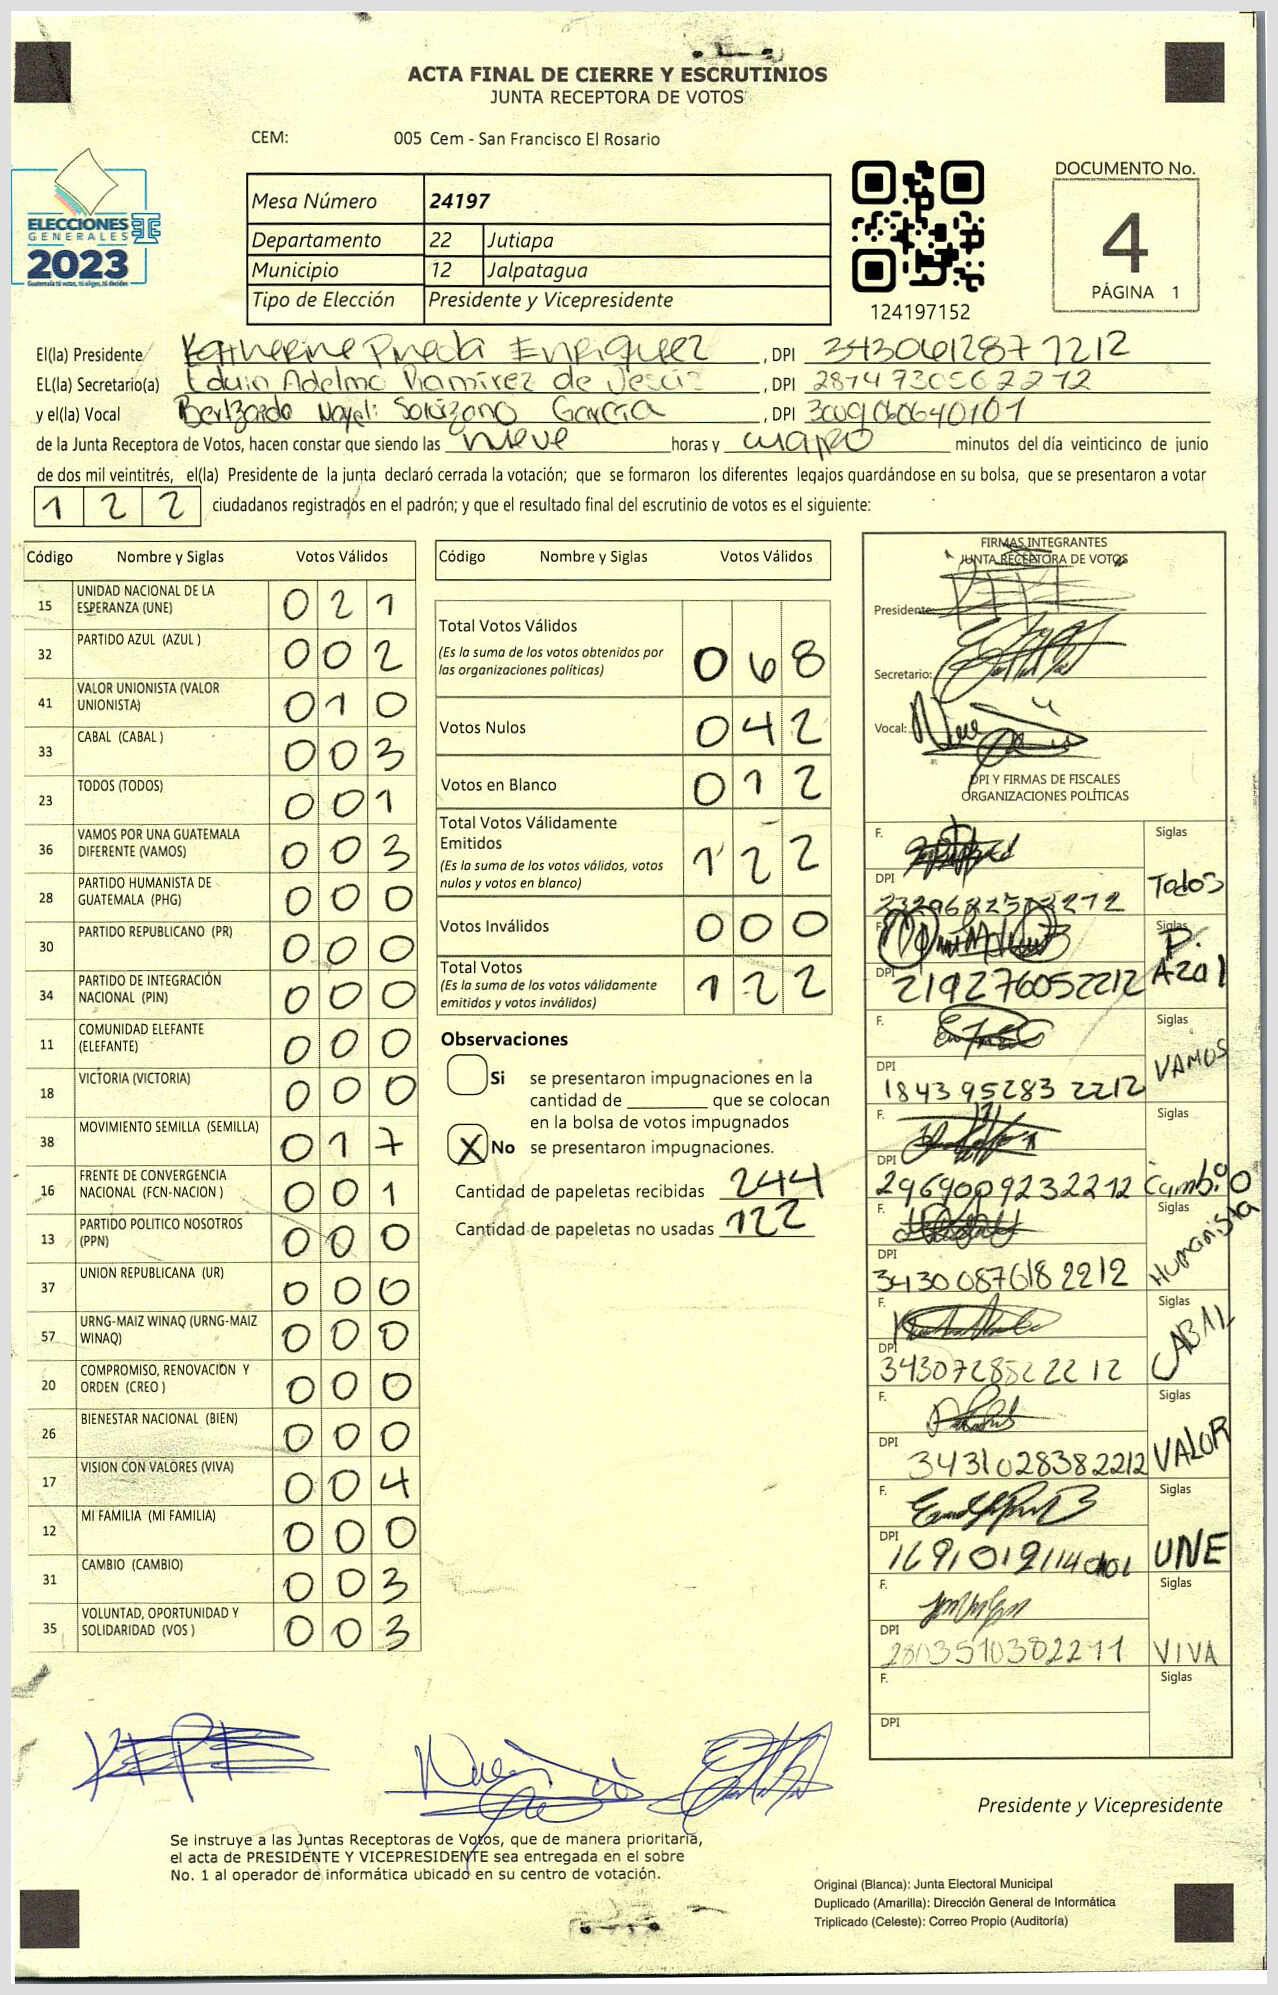 ACTA FINAL DE CIERRE Y ESCRUTINIOS
JUNTA RECEPTORA DE VOTOS
CEM: 005 Cem - San Francisco El Rosario
ELECCIONES
GENERALES
2023
Guatemala tú votas, tú eliges, tú decides
Mesa Número 24197
Departamento 22 Jutiapa
Municipio 12 Jalpatagua
Tipo de Elección Presidente y Vicepresidente
124197152
DOCUMENTO No.
4
PÁGINA 1
El(la) Presidente Katherine Pineda Enriquez, DPI 3430612871212
EL(la) Secretario(a) Eduin Adelmo Ramirez de Jesús, DPI
y el(la) Vocal García, DPI
de la Junta Receptora de Votos, hacen constar que siendo las nueve horas y cuatro minutos del día veinticinco de junio
de dos mil veintitrés, el(la) Presidente de la junta declaró cerrada la votación; que se formaron los diferentes legajos guardándose en su bolsa, que se presentaron a votar
122 ciudadanos registrados en el padrón; y que el resultado final del escrutinio de votos es el siguiente:
Código Nombre y Siglas Votos Válidos
15 UNIDAD NACIONAL DE LA ESPERANZA (UNE) 021
32 PARTIDO AZUL (AZUL ) 002
41 VALOR UNIONISTA (VALOR UNIONISTA) 010
33 CABAL (CABAL ) 003
23 TODOS (TODOS) 001
36 VAMOS POR UNA GUATEMALA DIFERENTE (VAMOS) 003
28 PARTIDO HUMANISTA DE GUATEMALA (PHG) 000
30 PARTIDO REPUBLICANO (PR) 000
34 PARTIDO DE INTEGRACIÓN NACIONAL (PIN) 000
11 COMUNIDAD ELEFANTE (ELEFANTE) 000
18 VICTORIA (VICTORIA) 000
38 MOVIMIENTO SEMILLA (SEMILLA) 017
16 FRENTE DE CONVERGENCIA NACIONAL (FCN-NACION ) 001
13 PARTIDO POLITICO NOSOTROS (PPN) 000
37 UNION REPUBLICANA (UR) 000
57 URNG-MAIZ WINAQ (URNG-MAIZ WINAQ) 000
20 COMPROMISO, RENOVACION Y ORDEN (CREO ) 000
26 BIENESTAR NACIONAL (BIEN) 000
17 VISION CON VALORES (VIVA) 004
12 MI FAMILIA (MI FAMILIA) 000
31 CAMBIO (CAMBIO) 003
35 VOLUNTAD, OPORTUNIDAD Y SOLIDARIDAD (VOS ) 003
Código Nombre y Siglas Votos Válidos
Total Votos Válidos 068
(Es la suma de los votos obtenidos por
las organizaciones políticas)
Votos Nulos 042
Votos en Blanco 012
Total Votos Válidamente
Emitidos 122
(Es la suma de los votos válidos, votos
nulos y votos en blanco)
Votos Inválidos 000
Total Votos 122
(Es la suma de los votos válidamente
emitidos y votos inválidos)
Observaciones
Si se presentaron impugnaciones en la
cantidad de ________ que se colocan
en la bolsa de votos impugnados
X No se presentaron impugnaciones.
Cantidad de papeletas recibidas 244
Cantidad de papeletas no usadas 122
FIRMAS INTEGRANTES
JUNTA RECEPTORA DE VOTOS
Presidente:
Secretario:
Vocal:
DPI Y FIRMAS DE FISCALES
ORGANIZACIONES POLÍTICAS
F. Siglas
DPI Todos
F. Siglas
DPI 219276052212 P. Azul
F. Siglas
DPI 1843952832212 VAMOS
F. Siglas
DPI 2969009232212 Cambio
F. Siglas
DPI 34300876182212 Humanista
F. Siglas
DPI 3430728522212 CABAL
F. Siglas
DPI 3431028382212 VALOR
F. Siglas
DPI UNE
F. Siglas
DPI 2803510382211 VIVA
F. Siglas
DPI
Presidente y Vicepresidente
Se instruye a las Juntas Receptoras de Votos, que de manera prioritaria,
el acta de PRESIDENTE Y VICEPRESIDENTE sea entregada en el sobre
No. 1 al operador de informática ubicado en su centro de votación.
Original (Blanca): Junta Electoral Municipal
Duplicado (Amarilla): Dirección General de Informática
Triplicado (Celeste): Correo Propio (Auditoría)